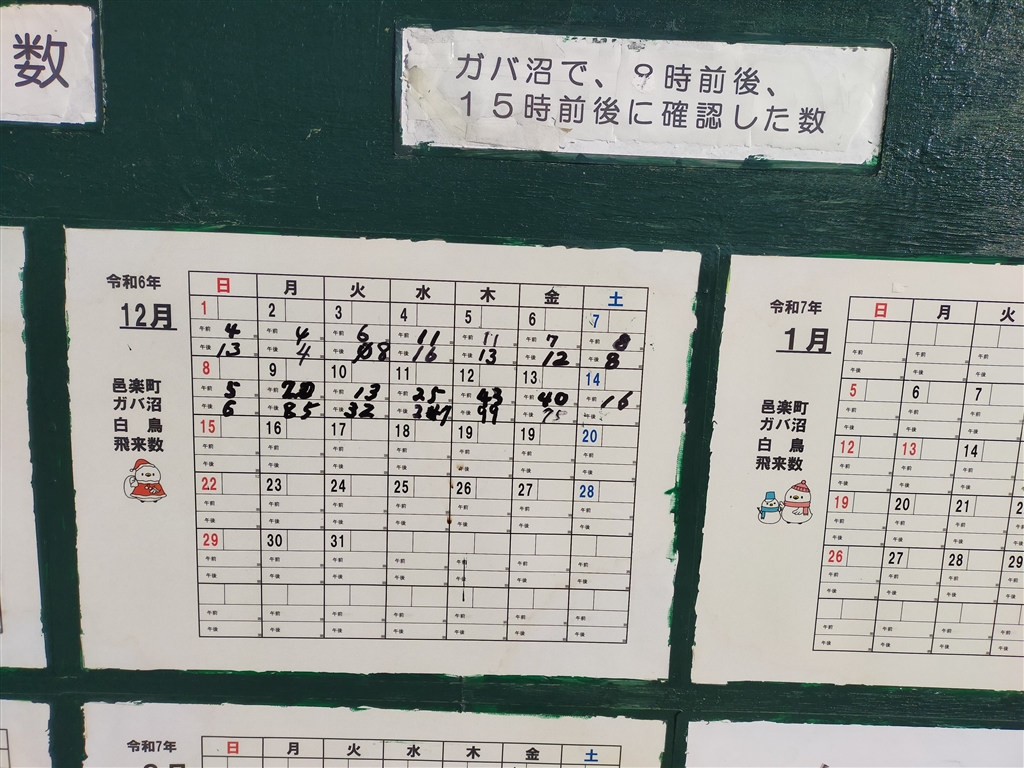 数
ガバ沼で、9時前後、
15時前後に確認した数
令和6年
12月
邑楽町
ガバ沼
白鳥
飛来数
日 月 火 水 木 金 土
1 2 3 4 5 6 7
午前 4 午前 4 午前 6 午前 11 午前 11 午前 7 午前 8
午後 13 午後 4 午後 8 午後 16 午後 13 午後 12 午後 8
8 9 10 11 12 13 14
午前 5 午前 20 午前 13 午前 25 午前 43 午前 40 午前 16
午後 6 午後 85 午後 32 午後 午後 99 午後 75 午後
15 16 17 18 19 19 20
午前 午前 午前 午前 午前 午前 午前
午後 午後 午後 午後 午後 午後 午後
22 23 24 25 26 27 28
午前 午前 午前 午前 午前 午前 午前
午後 午後 午後 午後 午後 午後 午後
29 30 31
午前 午前 午前 午前 午前 午前 午前
午後 午後 午後 午後 午後 午後 午後
午前 午前 午前 午前 午前 午前 午前
午後 午後 午後 午後 午後 午後 午後
令和7年
1月
邑楽町
ガバ沼
白鳥
飛来数
日 月 火
午前 午前 午前
午後 午後 午後
5 6 7
午前 午前 午前
午後 午後 午後
12 13 14
午前 午前 午前
午後 午後 午後
19 20 21
午前 午前 午前
午後 午後 午後
26 27 28 29
午前 午前 午前
午後 午後 午後
午前 午前 午前
午後 午後 午後
令和7年
日 月 火 水 木 金 土